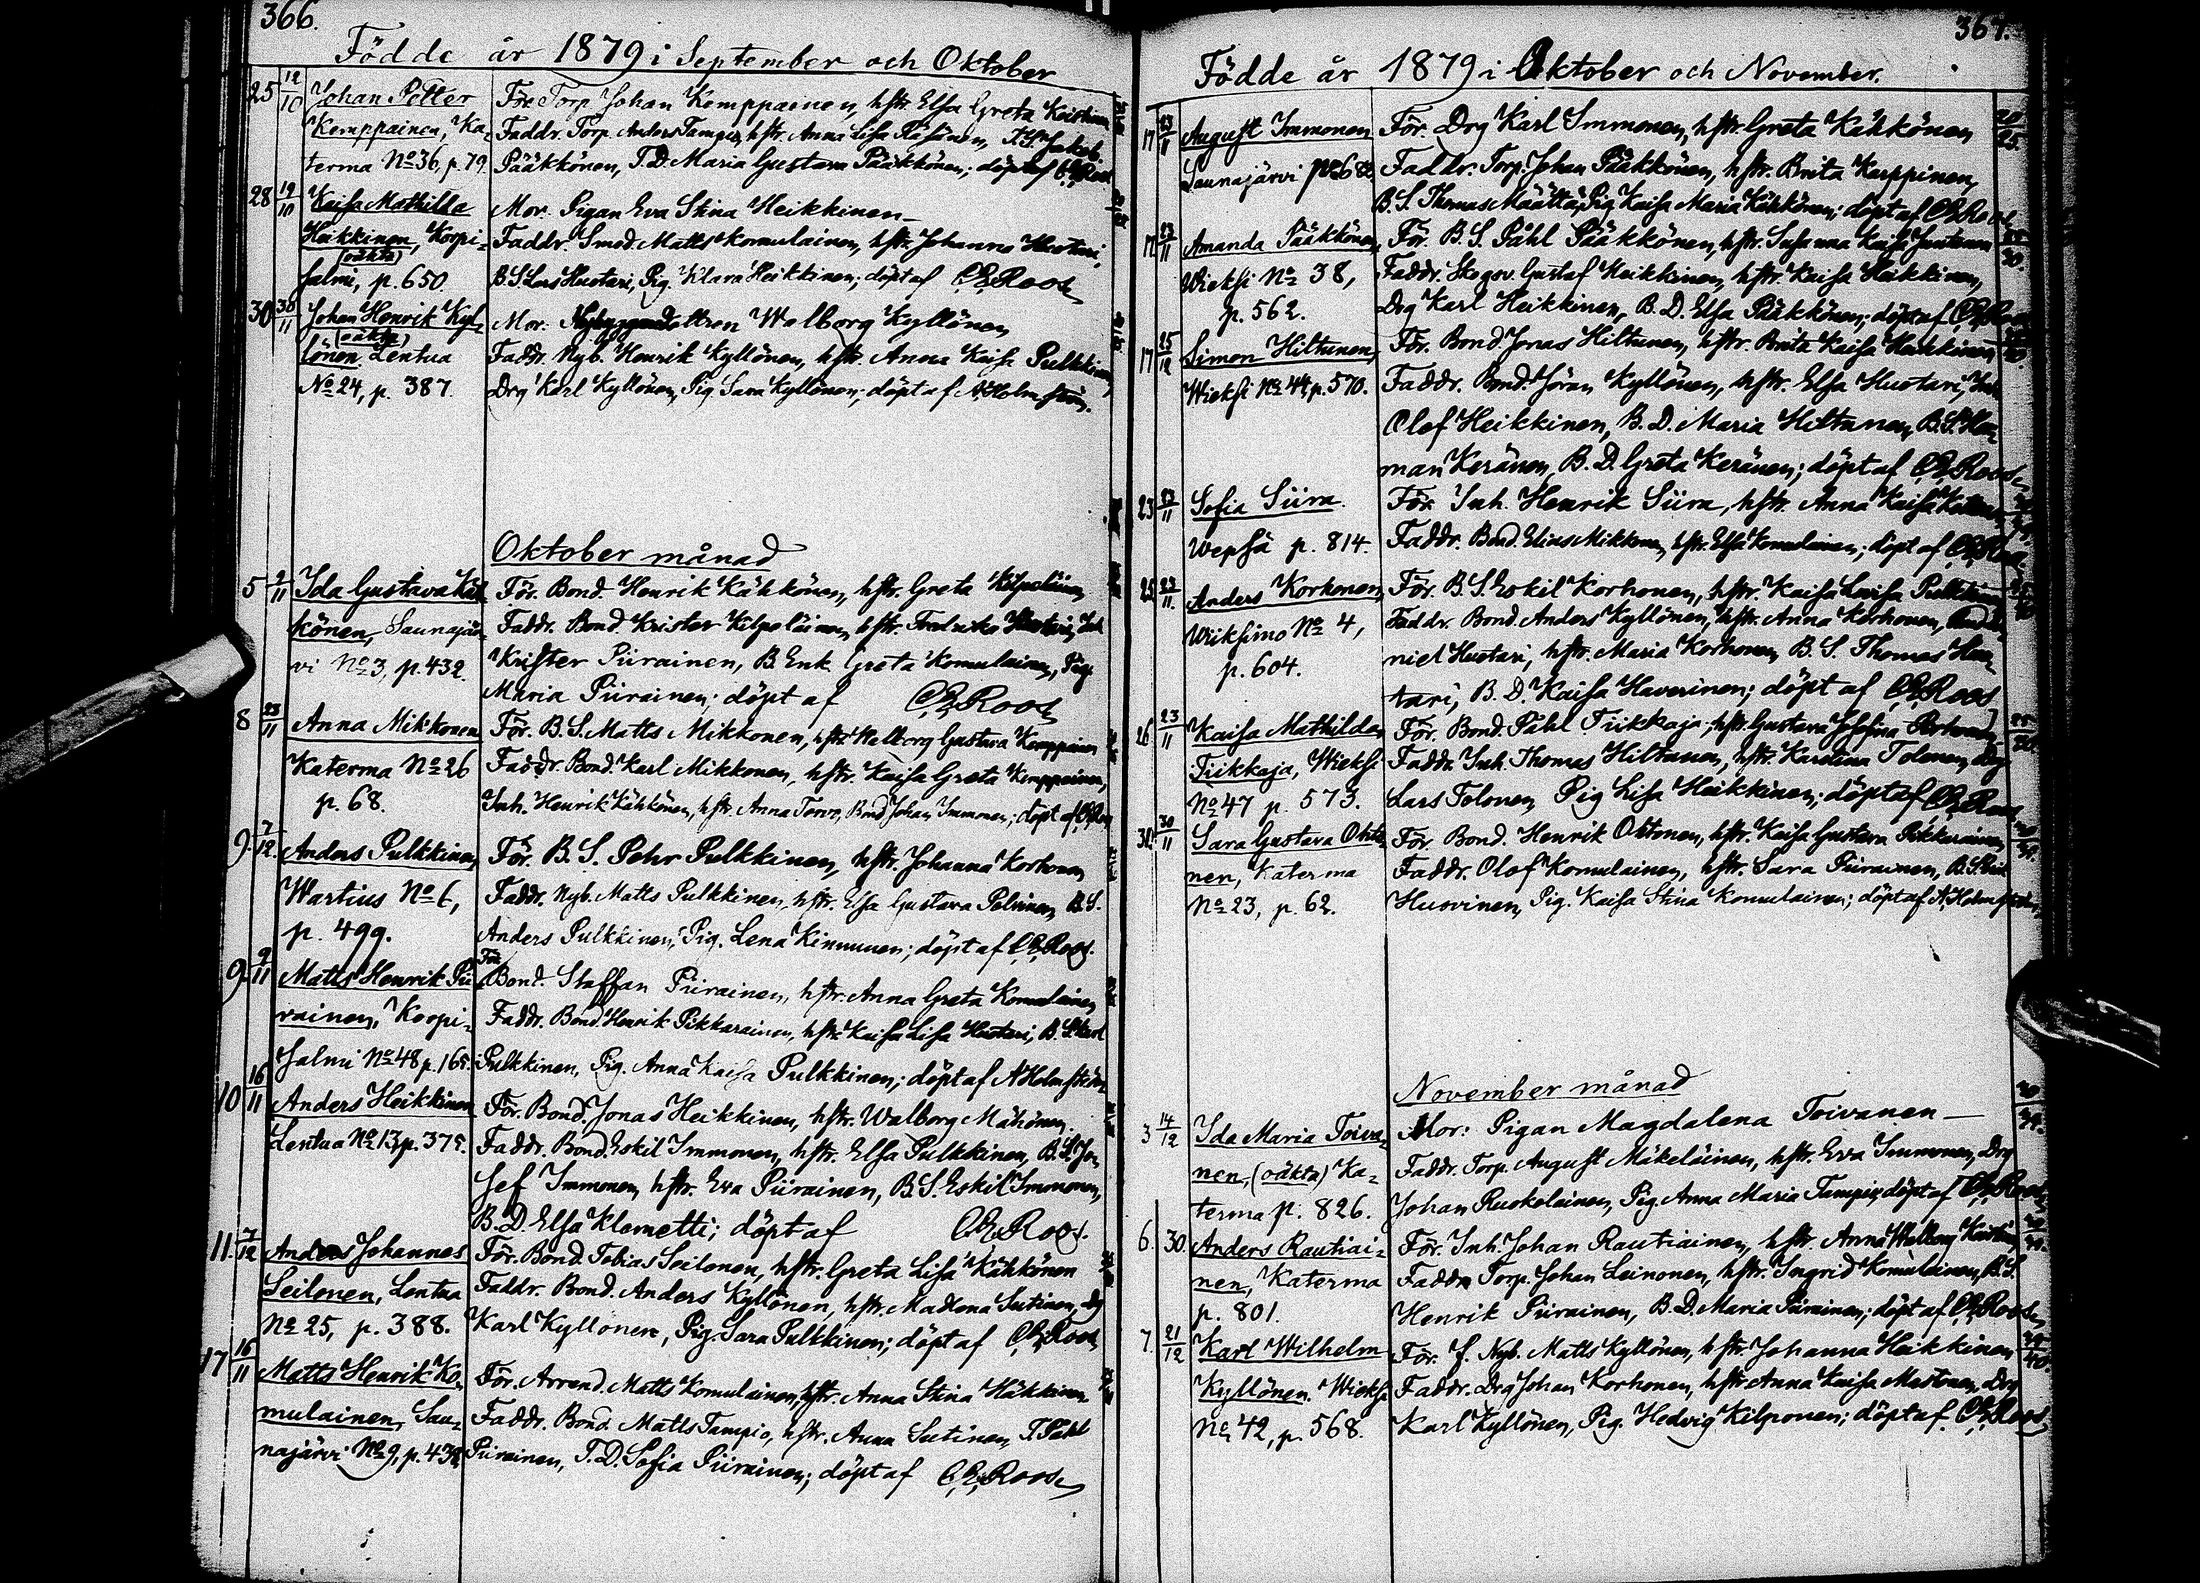 366.
Födde år 1879 i September och Oktober
25 12/10 Johan Petter För. Torp. Johan Kemppainen, hstr. Elsa Greta
Kemppainen, Ka- Faddr. Torp. Anders Tampio, hstr. Anna Lisa Jakob
terma No 36, p. 79. Pääkkönen, T.D. Maria Gustava Pääkkönen; döpt af C.E. Roos
28 19/10 Kaisa Mathilda Mor. Pigan Eva Stina Heikkinen—
Heikkinen, Korpi- Faddr. Smed. Matts Komulainen, hstr. Johanna Huotari,
(oäkta)
salmi, p. 650. B.S. Lars Huotari, Pig. Klara Heikkinen; döpt af C.E. Roos
30 30/11 Johan Henrik Kyl- Mor. Walborg Kyllönen
(oäkta)
lönen. Lentua Faddr. Nyb. Henrik Kyllönen, hstr. Anna Kaisa Pulkkinen,
No 24, p. 387. Drg Karl Kyllönen, Pig. Sara Kyllönen; döpt af A. Holmström.
Oktober månad
5 2/11 Ida Gustava Käh- För. Bond. Henrik Kähkönen, hstr. Greta Kilpeläinen
könen, Saunajär- Faddr. Bond. Krister Kilpeläinen, hstr. Fredrika Huotari, Inh
vi No 3, p. 432. Krister Piirainen, B. Enk. Greta Komulainen, Pig.
Maria Piirainen; döpt af C.E. Roos
8 23/11 Anna Mikkonen För. B.S. Matts Mikkonen, hstr. Walborg Gustava Kemppainen
Katerma No 26 Faddr. Bond. Karl Mikkonen, hstr. Kaisa Greta Kemppainen,
p. 68. Inh. Henrik Kähkönen, hstr. Anna Torvo, Bond Johan Immonen; döpt af C.E. Roos
9 7/12 Anders Pulkkinen, För. B.S. Pehr Pulkkinen, hstr. Johanna Korhonen
Wartius No 6, Faddr. Nyb. Matts Pulkkinen, hstr. Elsa Gustava Polvinen, B.S.
p. 499. Anders Pulkkinen, Pig. Lena Kinnunen; döpt af C.E. Roos.
9 9/11 Matts Henrik Pii- För. Bond. Staffan Piirainen, hstr. Anna Greta Komulainen
rainen, Korpi- Faddr. Bond. Henrik Pikkarainen, hstr. Kaisa Lisa Huotari, B.S. Karl
salmi No 48 p. 165. Pulkkinen, Pig. Anna Kaisa Pulkkinen; döpt af A Holmström
10 16/11 Anders Heikkinen För. Bond. Jonas Heikkinen, hstr. Walborg Mähönen.
Lentua No 13, p. 375. Faddr. Bond. Eskil Immonen, hstr. Elsa Pulkkinen, B.S. Jo-
sef Immonen, hstr. Eva Piirainen, B.S. Eskil Immonen,
B.D. Elsa Klemetti; döpt af C.E. Roos.
11. 7/12 Anders Johannes För. Bond. Tobias Seilonen, hstr. Greta Lisa Kähkönen
Seilonen, Lentua Faddr. Bond. Anders Kyllönen, hstr. Madlena Sutinen, Dg
No 25, p. 388. Karl Kyllönen, Pig. Sara Pulkkinen; döpt af C.E. Roos
17 16/11 Matts Henrik Ko- För. Arrend. Matts Komulainen, hstr. Anna Stina Häkkinen
mulainen, Sau- Faddr. Bond. Matts Tampio, hstr. Anna Sutinen, T. Påhl
najärvi No 9, p. 438. Piirainen, T.D. Sofia Piirainen; döpt af C.E. Roos
367.
Födde år 1879 i Oktober och November.
17 23/11 August Immonen För. Drg Karl Immonen, hstr. Greta Kähkönen
Saunajärvi p. 682 Faddr. Torp. Johan Pääkkönen, hstr. Brita Karppinen,
B.S. Thomas Määttä, Pig. Kaisa Maria Kähkönen; döpt af C.E. Roos
17 23/11 Amanda Pääkkönen, För. B.S. Påhl Pääkkönen, hstr. Susanna Kaisa Juntunen
Wieksi No 38, Faddr. Skogsv. Gustaf Heikkinen, hstr. Kaisa Heikkinen,
p. 562. Drg Karl Heikkinen, B.D. Elsa Pääkkönen; döpt af C.E. Roos
17 25/12 Simon Hiltunen, För. Bond Jonas Hiltunen, hstr. Brita Kaisa Heikkinen
Wieksi No 44, p. 570. Faddr. Bond. Jöran Kyllönen, hstr. Elsa Huotari, Inh
Olof Heikkinen, B.D. Maria Hiltunen, B.S. Her-
man Keränen, B.D. Greta Keränen; döpt af C.E. Roos
23 23/11 Sofia Siira. För. Inh. Henrik Siira, hstr. Anna Kaisa
Wepsä p. 814. Faddr. Bond. Elias Mikkonen, hstr. Elsa Komulainen; döpt af C.E. Roos
25 23/11 Anders Korhonen, För. B.S. Eskil Korhonen, hstr. Kaisa Lovisa Pulkkinen
Wiiksimo No 4, Faddr. Bond. Anders Kyllönen, hstr. Anna Korhonen,
p. 604. niel Huotari, hstr. Maria Korhonen, B.S. Thomas Huo-
tari, B.D. Kaisa Haverinen; döpt af C.E. Roos
26 23/11 Kaisa Mathilda För. Bond. Påhl Tiikkaja, hstr. Gustava Josefina
Tiikkaja, Wieksi Faddr. Inh. Thomas Hiltunen, hstr. Karolina Tolonen, Drg
No 47 p. 573. Lars Tolonen, Pig. Lisa Heikkinen; döpt af C.E. Roos
30 30/11 Sara Gustava Okto- För. Bond. Henrik Oktonen, hstr. Kaisa Gustava Pikkarainen,
nen, Katerma Faddr. Olof Komulainen, hstr. Sara Piirainen, B.S.
No 23, p. 62. Huovinen, Pig. Kaisa Stina Komulainen; döpt af A. Holmström
November månad
3 14/12 Ida Maria Toiva- Mor: Pigan Magdalena Toivanen—
nen, (oäkta) Ka- Faddr. Torp. August Mäkeläinen, hstr. Eva Immonen, Drg
terma p. 826. Johan Ruokolainen, Pig. Anna Maria Tampio; döpt af C.E. Roos
6. 30. Anders Rautiai- För. Inh. Johan Rautiainen, hstr. Anna Walborg
nen, Katerma Faddr. Torp. Johan Leinonen, hstr. Ingrid Komulainen, B.S.
p. 801. Henrik Piirainen, B.D. Maria Piirainen; döpt af C.E. Roos
7. 21/12 Karl Wilhelm För. f. Nyb. Matts Kyllönen, hstr. Johanna Heikkinen
Kyllönen. Wieksi Faddr. Drg Johan Korhonen, hstr. Anna Kaisa Mustonen, Drg
No 42, p. 568. Karl Kyllönen, Pig. Hedvig Kilponen; döpt af C.E. Roos